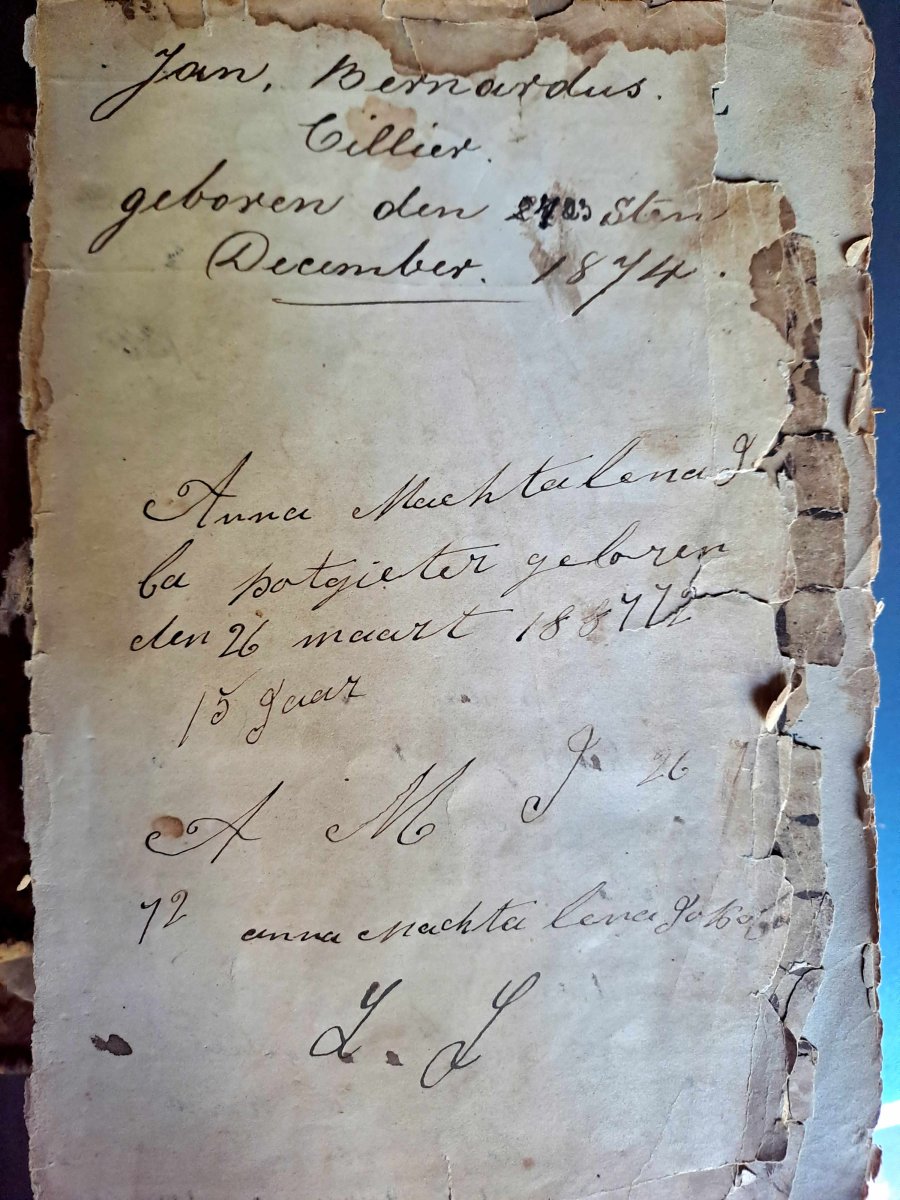 Jan, Bernardus.
Cillier.
geboren den sten
December. 1874.
Anna Machtalena J
ba potgieter geboren
den 26 maart
15 Jaar
A M J 26 7
72 anna Machta lena
L. J